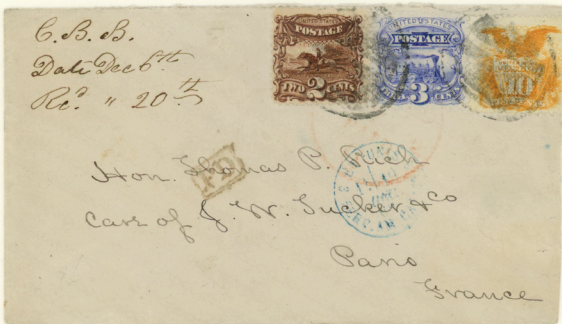 C. B. B.
Date Dec 6th
Recd " 20th
UNITED STATES
POSTAGE
2
TWO CENTS
UNITED STATES
POSTAGE
3
10
PD
Hon. Thomas P. Rich
Care of J. W. Tucker & Co
Paris
France